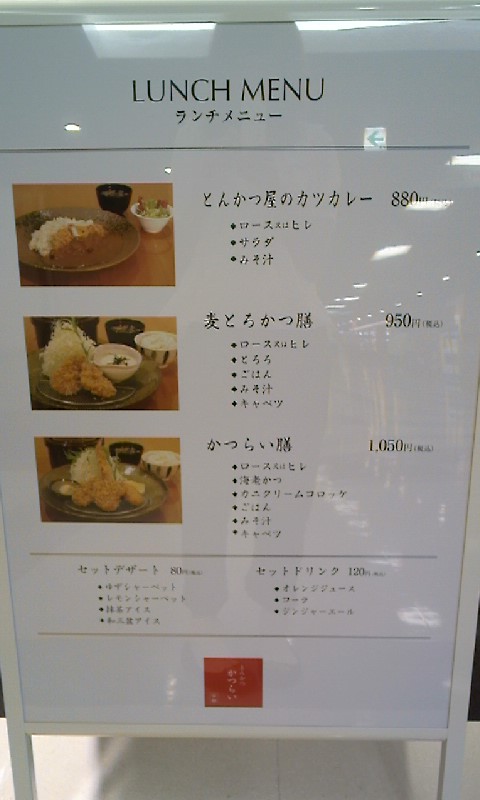 LUNCH MENU
ランチメニュー
とんかつ屋のカツカレー 880円
◆ロース又はヒレ
◆サラダ
◆みそ汁
麦とろかつ膳 950円(税込)
◆ロース又はヒレ
◆とろろ
◆ごはん
◆みそ汁
◆キャベツ
かつらい膳 1,050円(税込)
◆ロース又はヒレ
◆海老かつ
◆カニクリームコロッケ
◆ごはん
◆みそ汁
◆キャベツ
セットデザート 80円(税込)
◆ゆずシャーベット
◆レモンシャーベット
◆抹茶アイス
◆和三盆アイス
セットドリンク 120円(税込)
◆オレンジジュース
◆コーラ
◆ジンジャーエール
とんかつ
かつらい